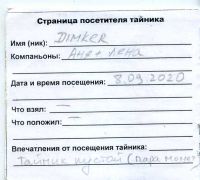 Страница посетителя тайника
Имя (ник): DIMKER
Компаньоны: Аня + Лена
Дата и время посещения: 8.09.2020
Что взял: —
Что положил: —
Впечатления от посещения тайника:
Тайник пустой (пара монет